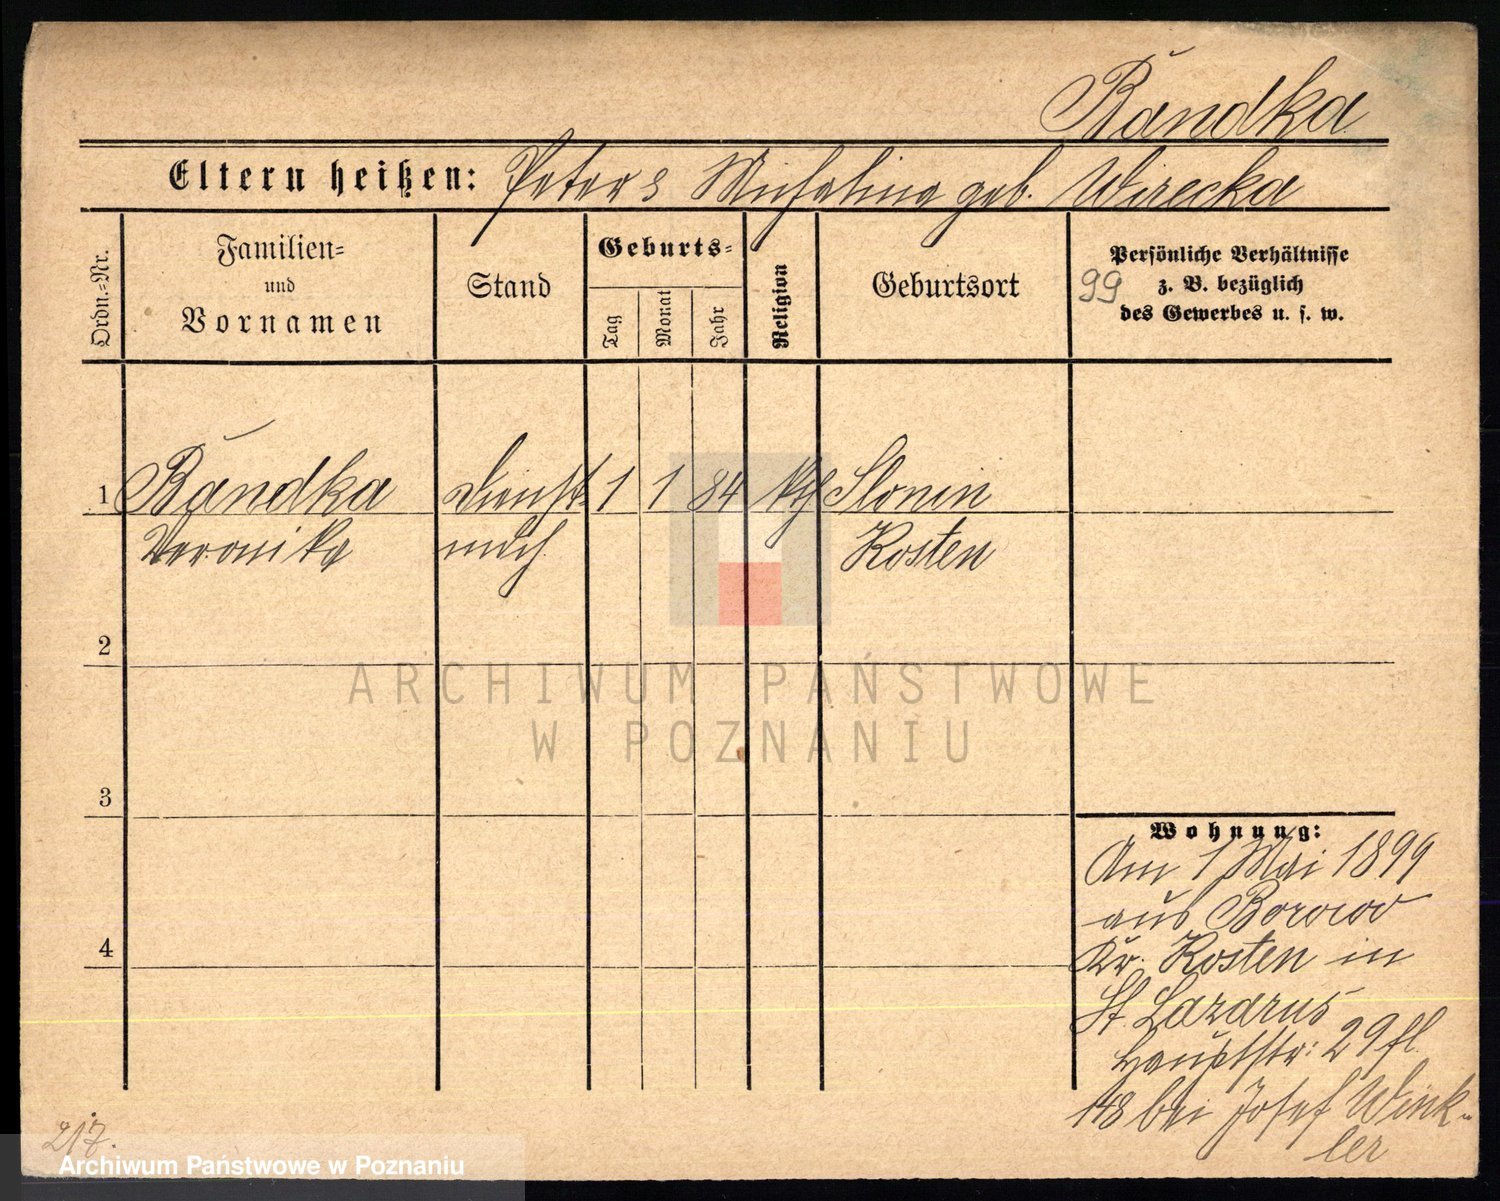 Bandka
Eltern heißen: Peter & Michalina geb. Wirecka
Ordn.-Nr.
Familien-
und
Vornamen
Stand
Geburts-
Tag
Monat
Jahr
Religion
Geburtsort
99
Persönliche Verhältnisse
z. B. bezüglich
des Gewerbes u. s. w.
1 Bandka Dienst- 1 1 84 kth Slonin
Veronika mdch Kosten
2
3
4
ARCHIWUM PAŃSTWOWE
W POZNANIU
Wohnung:
Am 1 Mai 1899
aus Borowo
Kr. Kosten in
St. Lazarus
Hauptstr: 29 fl.
148 bei Josef Wink-
ler
217.
Archiwum Państwowe w Poznaniu